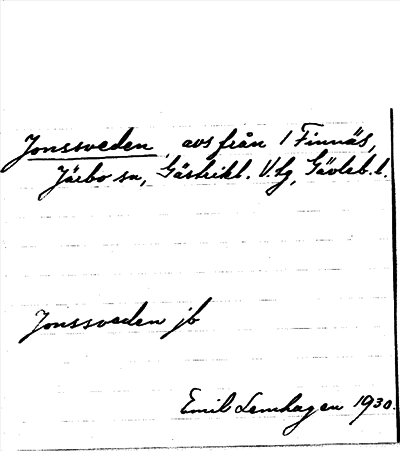 Jonssveden, avs från 1 Finnäs,
Järbo sn, Gästrikl. V. tg, Gävleb. l.
Jonssveden jb
Emil Lemhagen 1930.